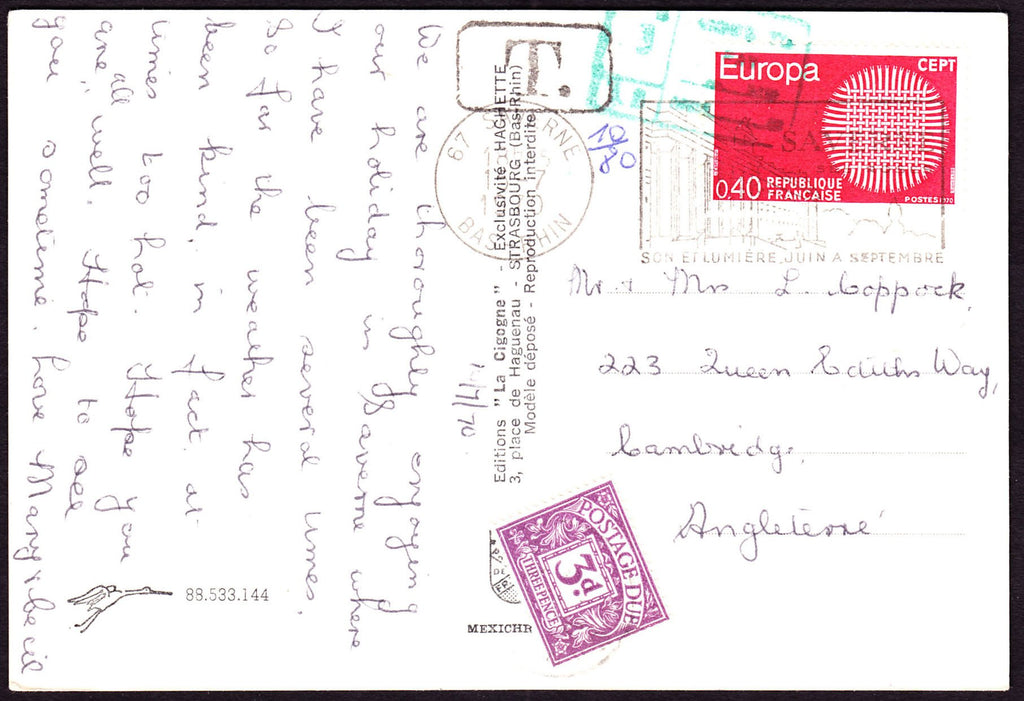 We are thoroughly enjoying
our holiday in Saverne where
I have been several times.
So far the weather has
been kind, in fact at
times too hot. Hope you
are all well. Hope to see
you sometime. Love Mary & Cecil
17/7/70
88.533.144
Editions "La Cigogne" - Exclusivité HACHETTE
3, place de Haguenau - STRASBOURG (Bas-Rhin)
Modèle déposé - Reproduction interdite
MEXICHR
T.
67 RNE
BAS RHIN
10/80
Europa
CEPT
0,40 REPUBLIQUE
FRANÇAISE
POSTES 1970
SON ET LUMIÈRE, JUIN A SEPTEMBRE
Mr & Mrs L. Coppock,
223 Queen Ediths Way,
Cambridge,
Angleterre
POSTAGE DUE
3d.
THREE PENCE